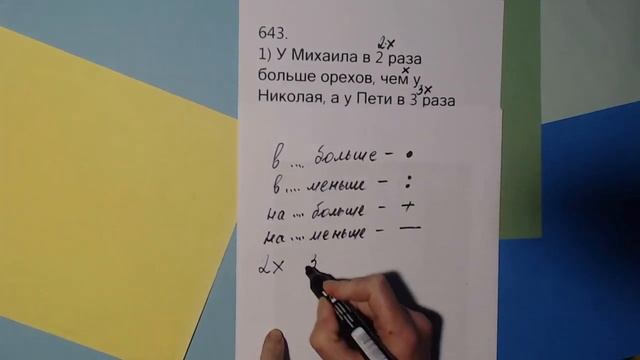 643.
2x
1) У Михаила в 2 раза
x
больше орехов, чем у
3x
Николая, а у Пети в 3 раза
в ... больше - •
в .... меньше - :
на ... больше - +
на ... меньше - —
2x 3